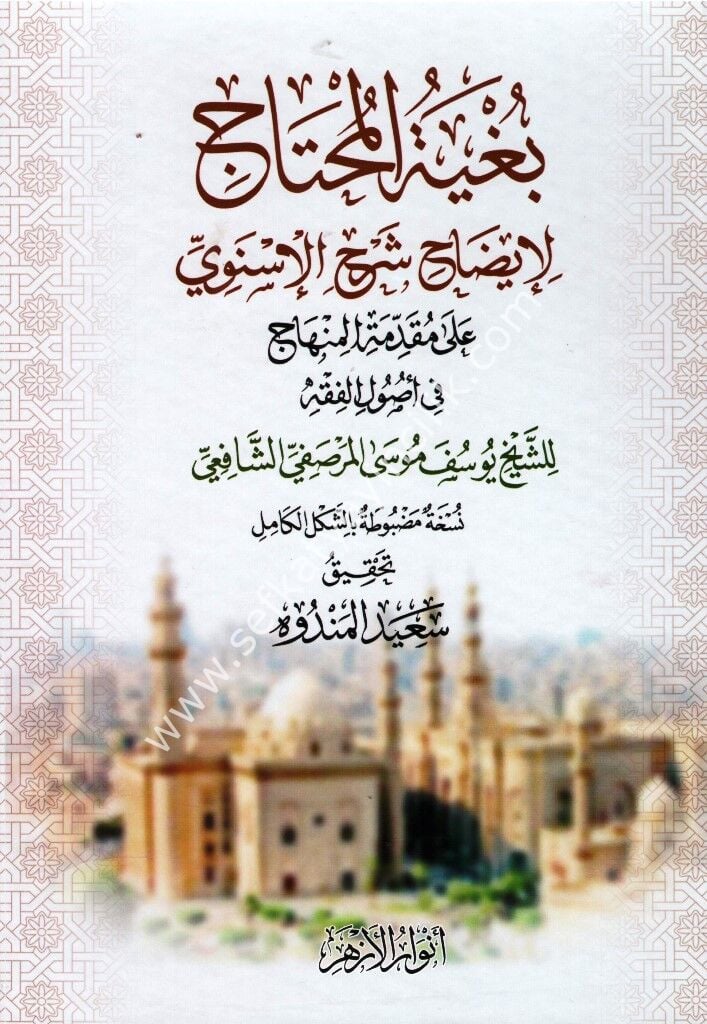 بُغْيَةُ المُحْتَاجِ
لِإِيضَاحِ شَرْحِ الإِسْنَوِيِّ
عَلَى مُقَدِّمَةِ المِنْهَاجِ
فِي أُصُولِ الفِقْهِ
لِلشَّيْخِ يُوسُفَ مُوسَى المَرْصَفِيِّ الشَّافِعِيِّ
نُسْخَةٌ مَضْبُوطَةٌ بِالشَّكْلِ الكَامِلِ
تَحْقِيقُ
سَعِيد المَنْدُوه
أَنْوَارُ الأَزْهَرِ